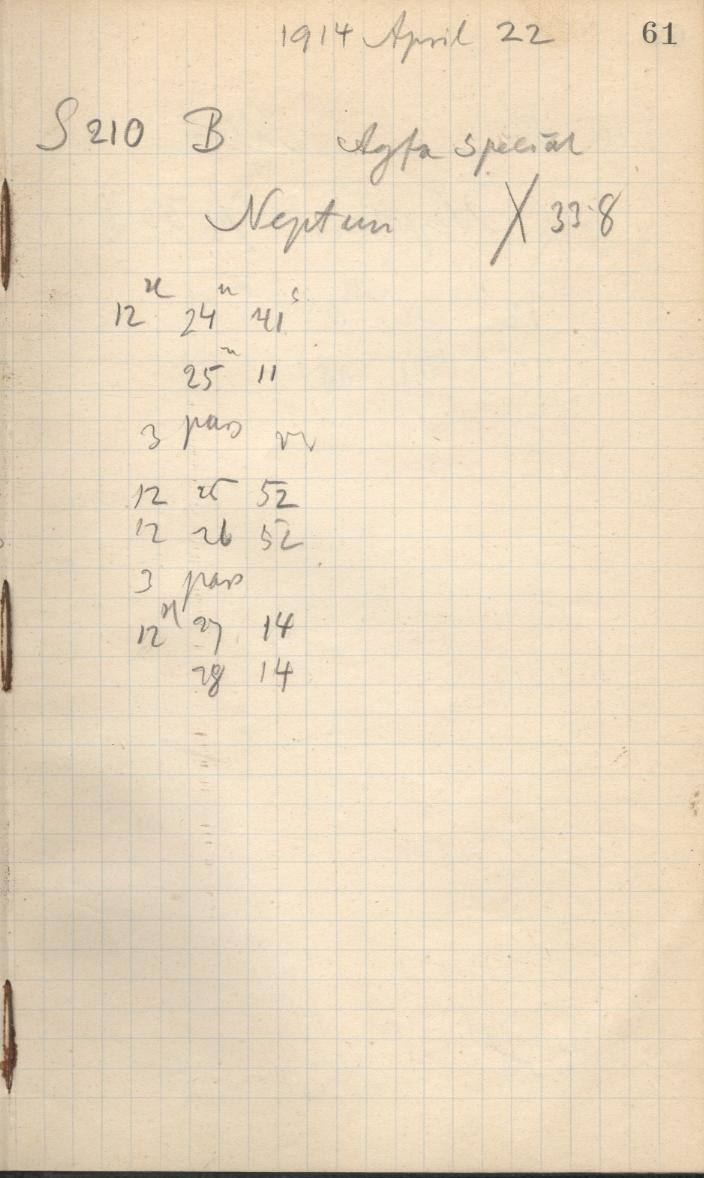 1914 April 22 61
S 210 B Agfa special
Neptun X 33.8
12h 24m 41s
25m 11
3 pas
12 25 52
12 26 52
3 pas
12h 27 14
28 14